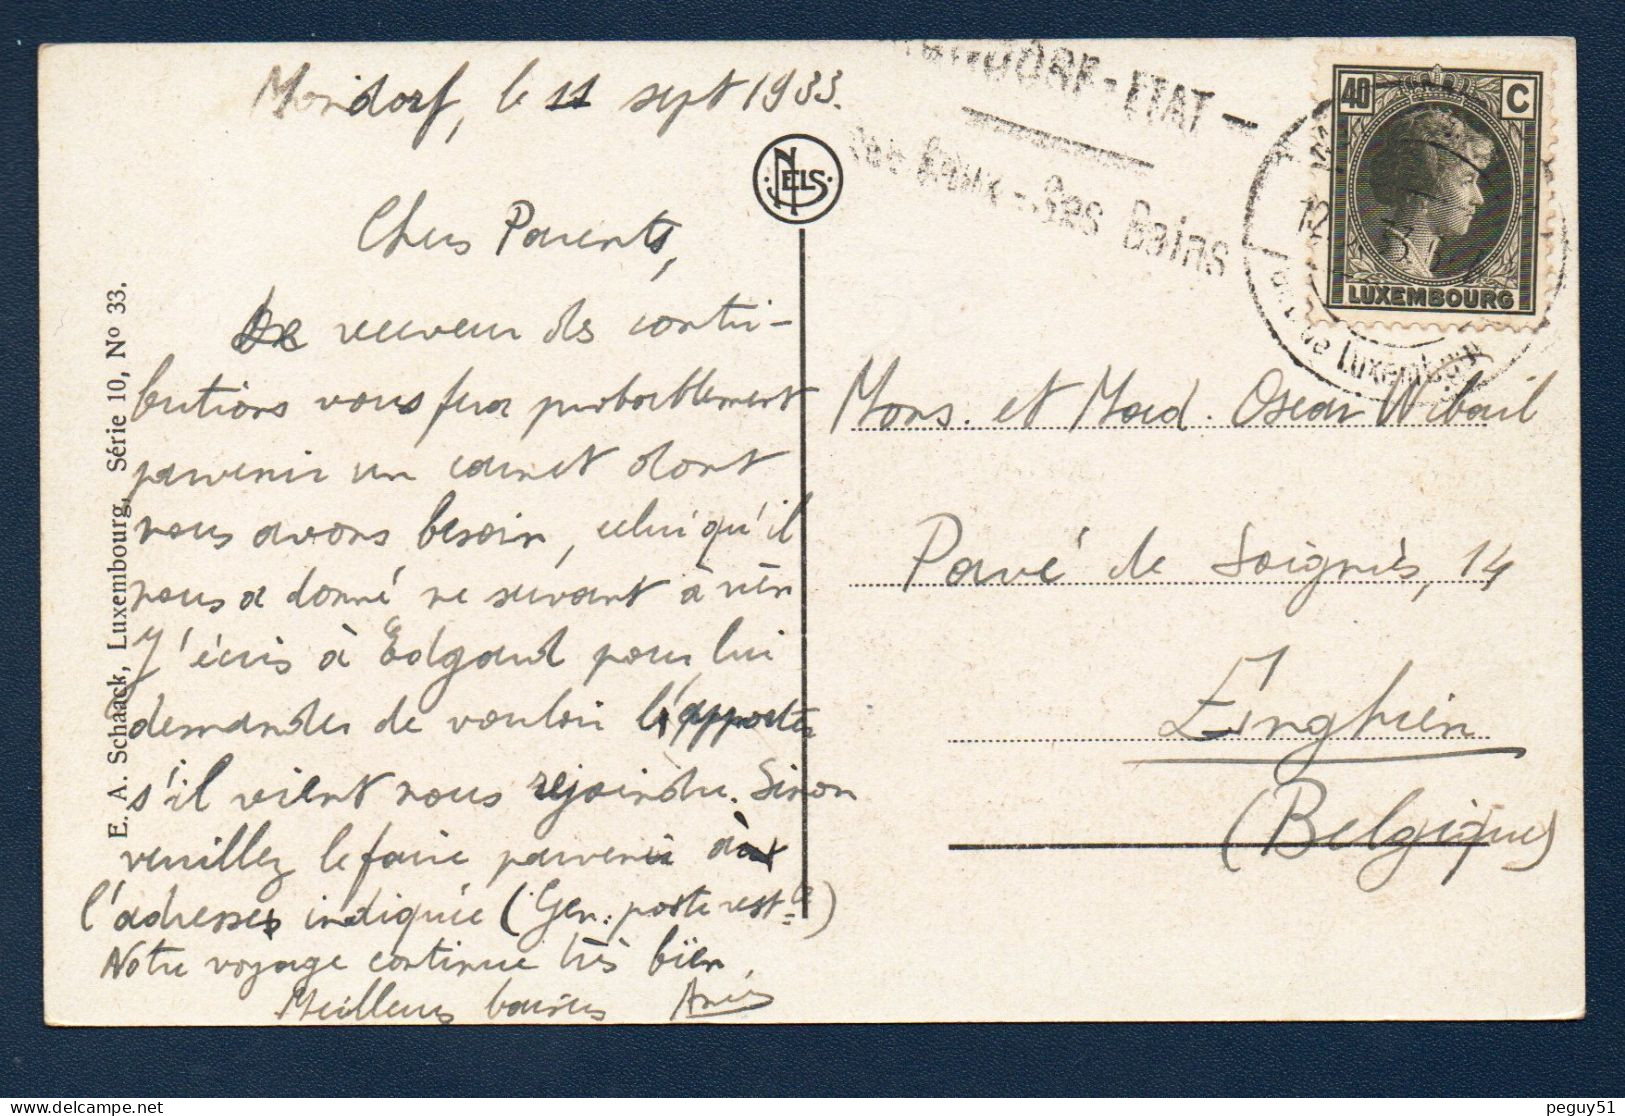 Mondorf, le 11 sept 1933.
Chers Parents,
Le receveur des contri-
butions vous fera probablement
parvenir un carnet dont
nous avons besoin, celui qu'il
nous a donné ne servant à rien
J'écris à Edgard pour lui
demander de vouloir l'apporter
s'il vient nous rejoindre. Sinon
veuillez le faire parvenir à
l'adresse indiquée (Gen. poste rest.te)
Notre voyage continue très bien.
Meilleurs baisers
E. A. Schaack, Luxembourg, Série 10, Nº 33.
NELS
MONDORF-ETAT -
Ses Eaux - Ses Bains
40 C
LUXEMBOURG
Mons. et Mad. Oscar Wibail
Pavé de Soignies, 14
Enghien
(Belgique)
peguy51